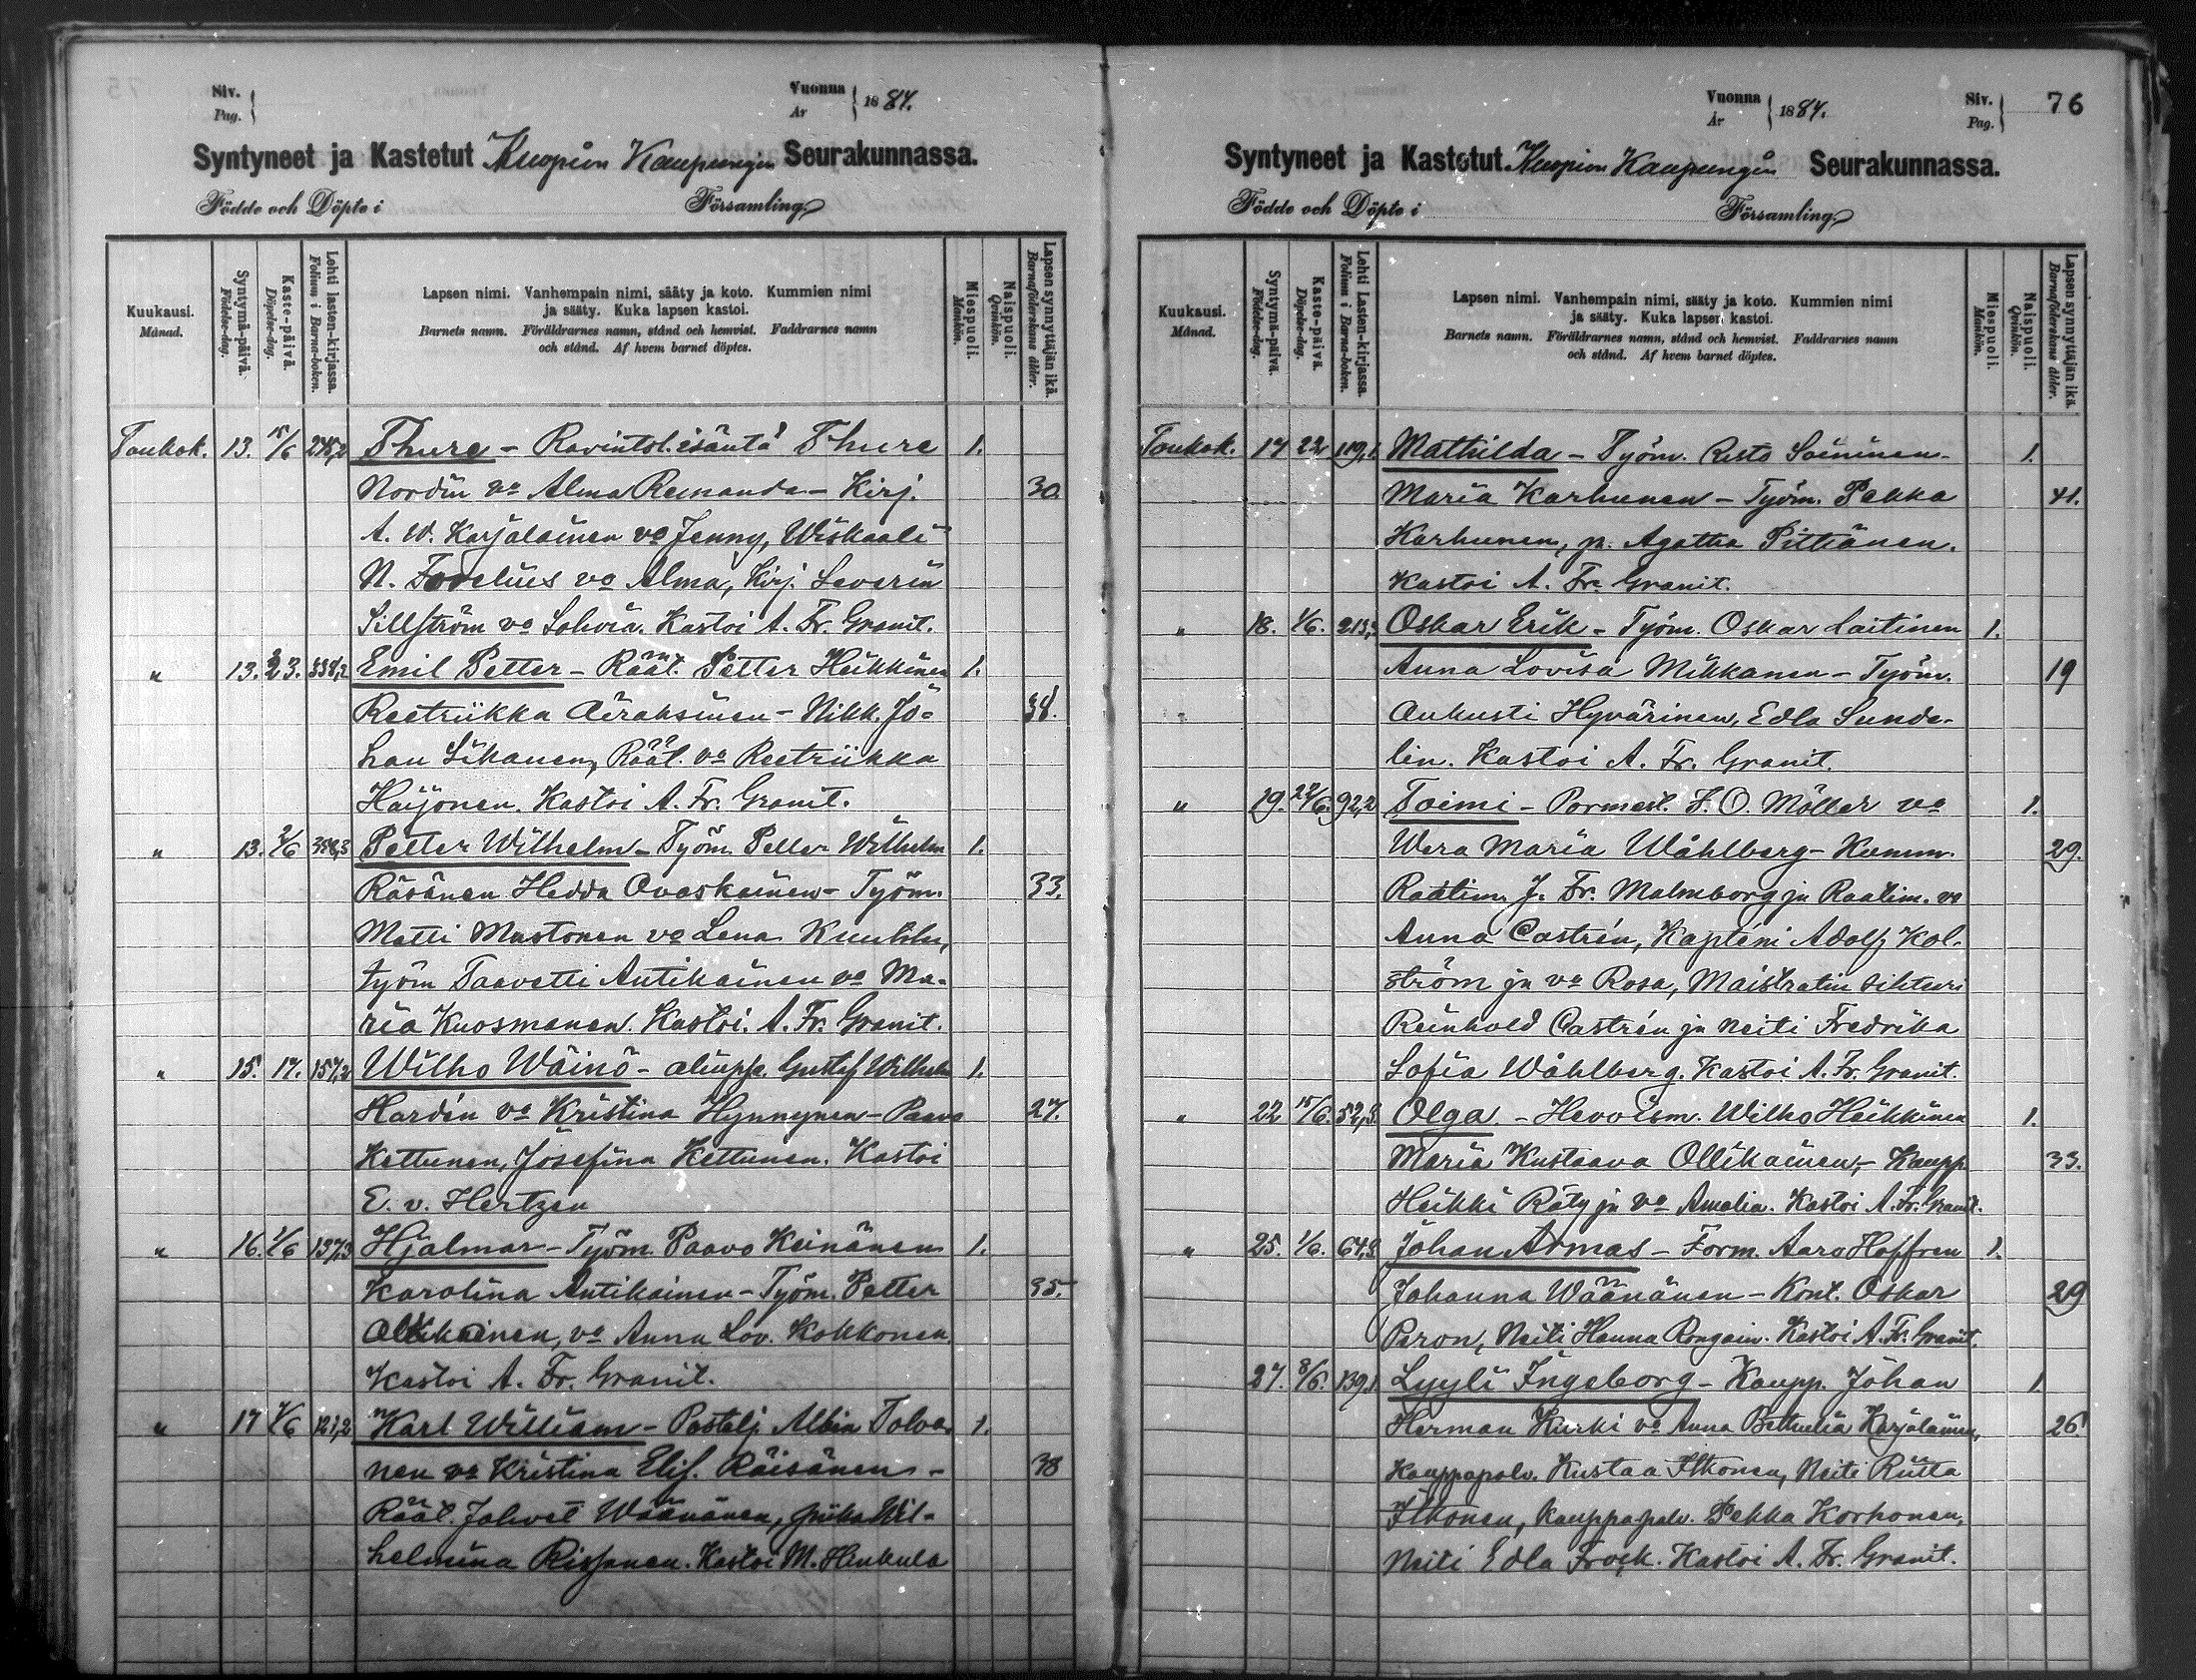 Siv.
Pag.
Vuonna
År
1884.
Syntyneet ja Kastetut Kuopion Kaupungin Seurakunnassa.
Födde och Döpte i Församling
Kuukausi.
Månad.
Syntymä-päivä.
Födelse-dag.
Kaste-päivä.
Döpelse-dag.
Lehti lasten-kirjassa.
Folium i Barna-boken.
Lapsen nimi. Vanhempain nimi, sääty ja koto. Kummien nimi
ja sääty. Kuka lapsen kastoi.
Barnets namn. Föräldrarnes namn, stånd och hemvist. Faddrarnes namn
och stånd. Af hvem barnet döptes.
Miespuoli.
Mankön.
Naispuoli.
Qvinkön.
Lapsen synnyttäjän ikä.
Barnaföderskans ålder.
Toukok. 13. 15/6 245,2 Thure - Ravintol. isäntä Thure 1.
Nordin vo Alma Remanda - Kirj. 30.
A. W. Karjalainen vo Jenny, Wiskaali
N. Fovelius vo Alma, Kirj. Severin
Sillström vo Solvia. Kastoi A. Fr. Granit.
" 13. 23. 338,2 Emil Petter - Räät. Petter Heikkinen 1.
Reetriikka Airaksinen - Nikk. Jo- 38.
han Sikanen, Räät. vo Reetriikka
Haijonen. Kastoi A. Fr. Granit.
" 13. 2/6 388,3 Petter Wilhelm - Työm. Petter Wilhelm 1.
Räsänen Hedda Ovaskainen - Työm. 33.
Matti Mustonen vo Lena
työm Taavetti Antikainen vo Ma-
ria Kuosmanen. Kastoi. A. Fr. Granit.
" 15. 17. 157,2 Wilho Wäinö - aliupps. Gustaf Wilhelm 1.
Hardén vo Kristina Hynnynen - Paavo 27.
Kettunen, Josefina Kettunen. Kastoi
E. v. Hertzen
" 16. 1/6 137,3 Hjalmar - Työm. Paavo Keinänen 1.
Karolina Antikainen - Työm. Petter 35.
Ollikainen, vo Anna Lov. Kokkonen.
Kastoi A. Fr. Granit.
" 17 1/6 121,2 Karl William - Postelj. Albin Tolva- 1.
nen vo Kristina Elis. Räisänen - 38
Räät. Jahvet Wäänänen, piika Wil-
helmina Rissanen. Kastoi M. Hinkula
Vuonna
År
1884.
Siv.
Pag.
76
Syntyneet ja Kastetut Kuopion Kaupungin Seurakunnassa.
Födde och Döpte i Församling
Kuukausi.
Månad.
Syntymä-päivä.
Födelse-dag.
Kaste-päivä.
Döpelse-dag.
Lehti Lasten-kirjassa.
Folium i Barna-boken.
Lapsen nimi. Vanhempain nimi, sääty ja koto. Kummien nimi
ja sääty. Kuka lapsen kastoi.
Barnets namn. Föräldrarnes namn, stånd och hemvist. Faddrarnes namn
och stånd. Af hvem barnet döptes.
Miespuoli.
Mankön.
Naispuoli.
Qvinkön.
Lapsen synnyttäjän ikä.
Barnaföderskans ålder.
Toukok. 17 22 119,1. Mathilda - Työm. Risto Soininen - 1.
Maria Karhunen - Työm. Pekka 41.
Karhunen, p. Agatha Pittiänen.
Kastoi A. Fr. Granit.
" 18. 1/6. 213,3 Oskar Erik - Työm. Oskar Laitinen 1.
Anna Lovisa Mikkanen - Työm. 19
Aukusti Hyvärinen, Edla Sunde-
lin. Kastoi A. Fr. Granit.
" 19. 22/6. 92,2 Toimi - Pormest. F. O. Möller vo 1.
Wera Maria Wåhlberg - Kumm. 29.
Raatim. J. Fr. Malmborg ja Raatim. vo
Anna Castrén, Kapteni Adolf Kol-
ström ja vo Rosa, Maistratin sihteri
Reinhold Castrén ja Neiti Fredrika
Sofia Wåhlberg. Kastoi A. Fr. Granit.
" 22 15/6. 52,3. Olga. - Hevoism. Wilho Heikkinen 1.
Maria Kustaava Ollikainen, - Kaupp. 33.
Heikki Räty ja vo Amalia. Kastoi A. Fr. Granit.
" 25. 1/6. 64,3. Johan Armas - Form. Aaro Hoffren 1.
Johanna Wäänänen - Kont. Oskar 29
Paron, Neiti Hanna Rongain. Kastoi A. Fr. Granit.
27. 8/6. 139,1. Lyyli Ingeborg - Kaupp. Johan 1.
Herman Kurki vo Anna Bethulia Karjalainen, 26.
Kauppapalv. Kustaa Itkonen, Neiti Riitta
Itkonen, Kauppapalv. Pekka Korhonen,
Neiti Edla Frock. Kastoi A. Fr. Granit.